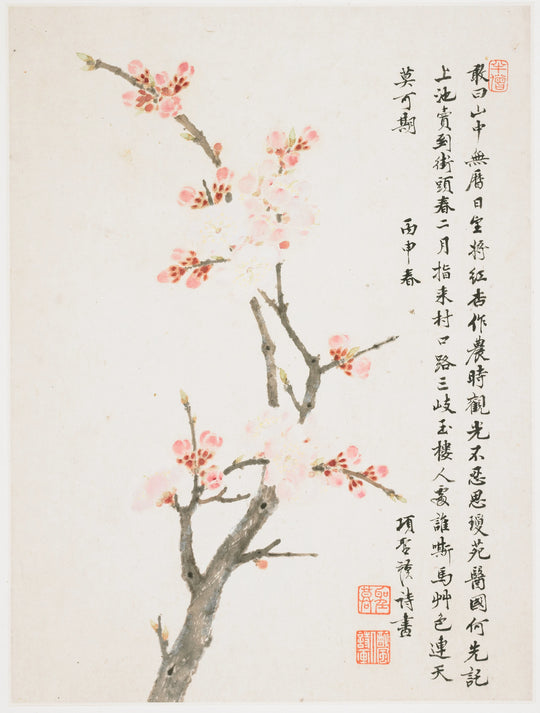 半僧
敢曰山中無曆日坐將紅杏作農時觀光不忍思瓊苑醫國何先記
上池賣到街頭春二月指來村口路三岐玉樓人處誰嘶馬艸色連天
莫可期 丙申春 項聖謨詩畫